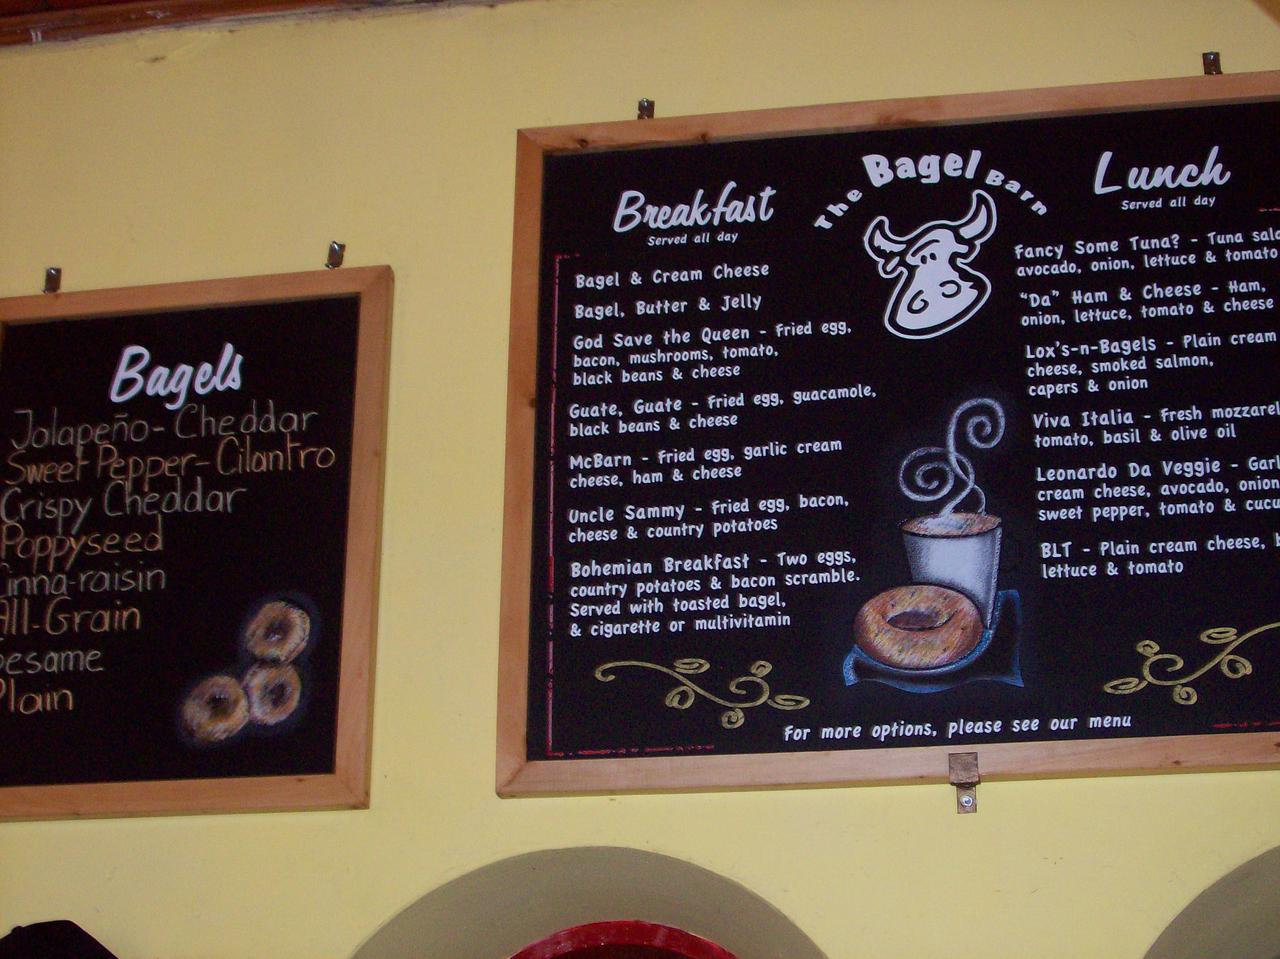 Bagels
Jalapeño-Cheddar
Sweet Pepper-Cilantro
Crispy Cheddar
Poppyseed
Cinna-raisin
All-Grain
Sesame
Plain
The Bagel Barn
Breakfast
Served all day
Bagel & Cream Cheese
Bagel, Butter & Jelly
God Save the Queen - Fried egg,
bacon, mushrooms, tomato,
black beans & cheese
Guate, Guate - Fried egg, guacamole,
black beans & cheese
McBarn - Fried egg, garlic cream
cheese, ham & cheese
Uncle Sammy - Fried egg, bacon,
cheese & country potatoes
Bohemian Breakfast - Two eggs,
country potatoes & bacon scramble.
Served with toasted bagel,
& cigarette or multivitamin
Lunch
Served all day
Fancy Some Tuna? - Tuna
avocado, onion, lettuce & tomato
"Da" Ham & Cheese - Ham,
onion, lettuce, tomato & cheese
Lox's-n-Bagels - Plain cream
cheese, smoked salmon,
capers & onion
Viva Italia - Fresh
tomato, basil & olive oil
Leonardo Da Veggie -
cream cheese, avocado, onion
sweet pepper, tomato &
BLT - Plain cream cheese,
lettuce & tomato
For more options, please see our menu